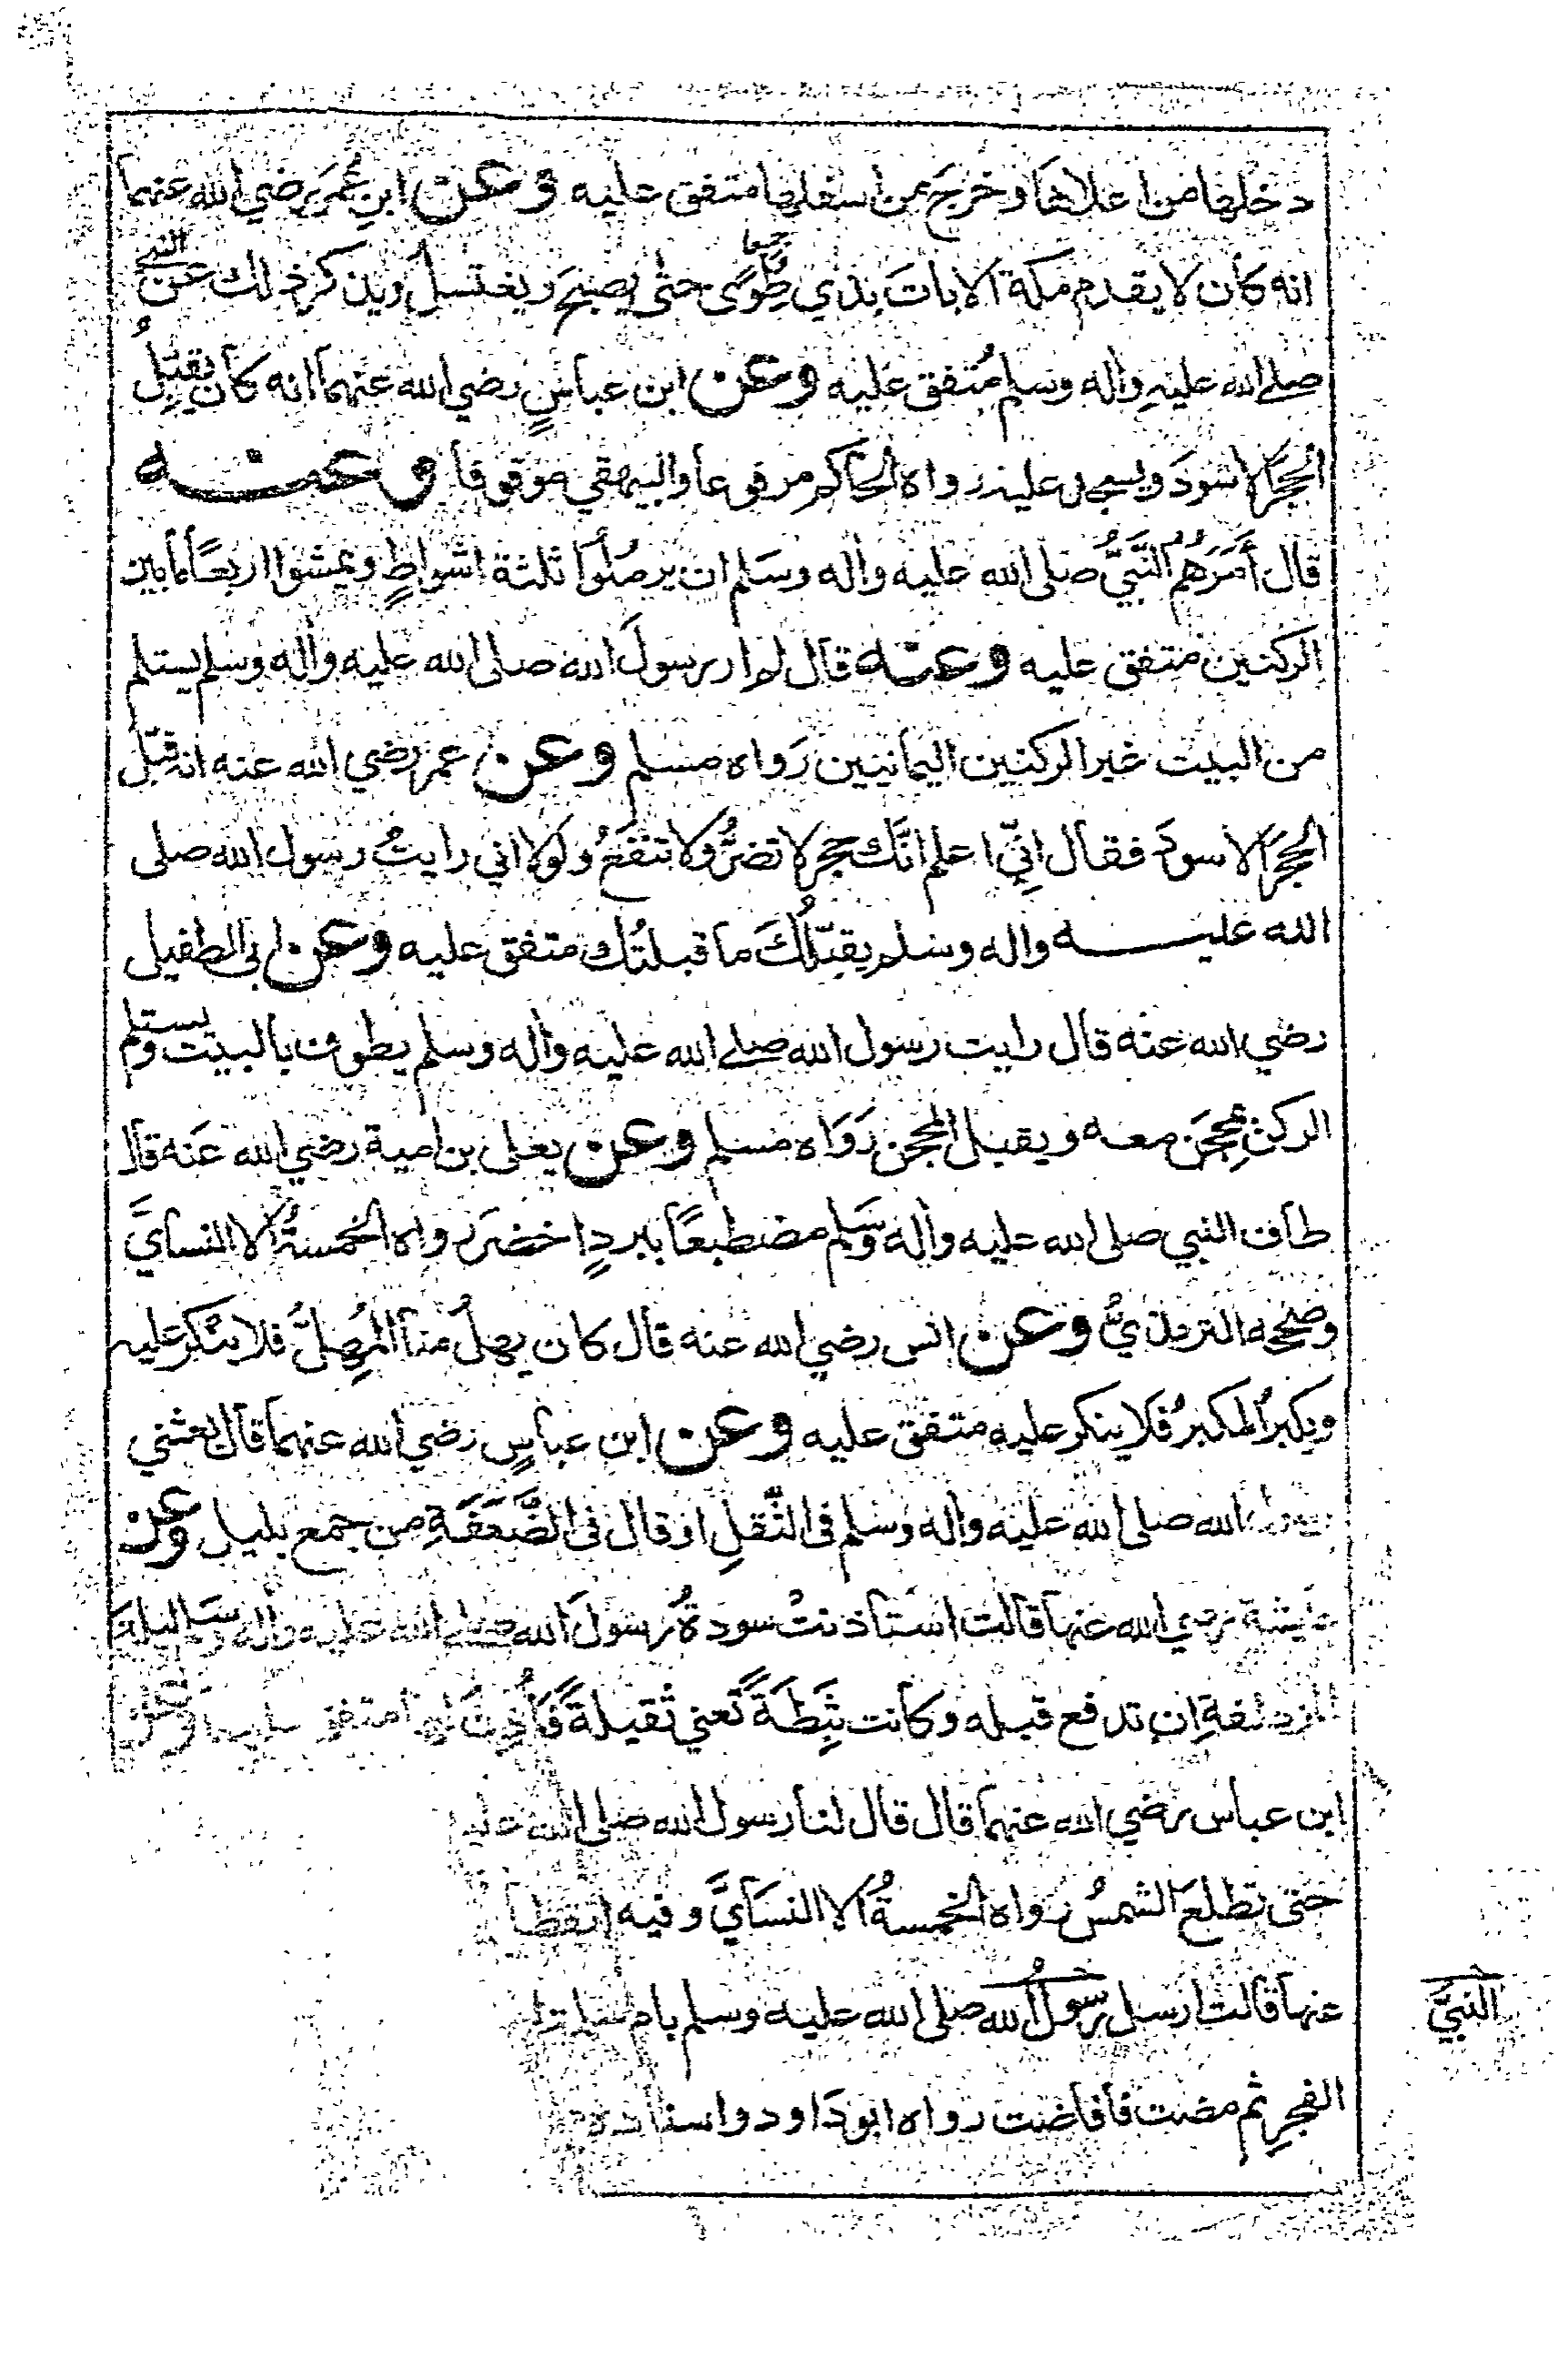 دخلها من اعلاها وخرج من اسفلها متفق عليه وعن ابنِ عُمَرَ رضي الله عنهما
انه كان لا يقدم مكة الا باتَ بذي طُوًى حتى يصبحَ ويغتسلُ ويذكر ذلك عن النبي
صلے الله عليهِ واله وسلم مُتفق عليه وعن ابن عباسٍ رضي الله عنهما انه كان يقبّلُ
الحجرَ الاسْودَ ويسجد عليه رواه الحاكم مرفوعا والبيهقي موقوفا وعنه
قال أَمَرَهُمُ النَّبيُّ صلى الله عليه واله وسَلم ان يرمُلُوا ثلثة اشواطٍ ويمشوا اربعًا ما بين
الركنين متفق عليه وعنه قال لم ار رسولَ الله صلى الله عليه واله وسلم يستلم
من البيت غير الركنين اليمانيين رَواه مسلم وعن عمر رضي الله عنه انه قبّل
الحجرَ الاسودَ فقال اِنِّي اعلم انَّك حجر لا تضرُّ ولا تنفعُ ولولا اني رايتُ رسول الله صلى
الله عليه واله وسلم يقبّلُكَ ما قبلتُك متفق عليه وعن ابى الطفيل
رضي الله عنه قال رايت رسول الله صلے الله عليه واله وسلم يطوف بالبيت ويستلم
الركنَ بِمحجَنٍ معه ويقبل المحجن رَوَاه مسلم وعن يعلى بن امية رضي الله عَنه قال
طاف النبي صلى الله عليه واله وسَلم مضطبعًا ببردٍ اخضرَ رواه الخمسةُ الا النسايَّ
وصححه الترمذيُّ وعن انس رضي الله عنه قال كان يهلُّ منا المُهِلُّ فلا ينكر عليه
ويكبرُ المكبرُ فلا ينكر عليه متفق عليه وعن ابن عباسٍ رضي الله عنهما قال بعثني
الله صلى الله عليه واله وسَلم فى الثَّقلِ او قال فى الضَّعَفَةِ من جمع بليل وعن
عايشة رضي الله عنها قالت استاذنتْ سودةُ رسولَ الله صلے الله عليه واله وسلم ليلة
المزدلفةِ ان تدفع قبله وكانت ثَبِطَةً تعني ثقيلةً فَاَذِنَ لها متفق عليهما وعن
ابن عباس رضي الله عنهما قال قال لنا رسول الله صلى الله عليه
حتى تطلعَ الشمسُ رواه الخمسةُ الا النسايَّ وفيه انقطا
عنها قالت ارسل رسولُ الله صلى الله عليه وسلم بام سلمة
النبيُّ
الفجرِ ثم مضت فافاضت رواه ابو دَاود واسناده